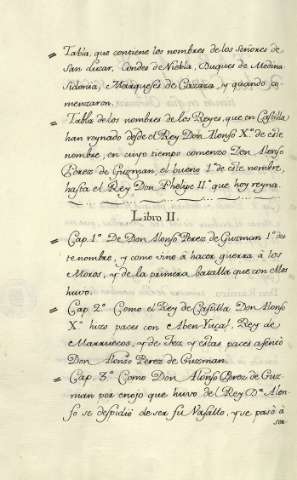 Tabla, que contiene los nombres de los Señores de
San Lucar. Condes de Niebla, Duques de Medina
Sidonia, Marqueses de Cazaza, y quando co-
menzaron.
Tabla de los nombres de los Reyes, que en Castilla
han reynado desde el Rey Don Alonso X.º de este
nombre, en cuyo tiempo comenzo Don Alonso
Perez de Guzman, el bueno 1.º de este nombre,
hasta el Rey Don Phelipe II.º que hoy reyna.
Libro II.
Cap. 1.º De Don Alonso Perez de Guzman 1.º des-
te nombre, y como vino à hacer guerra à los
Moros, y de la primera batalla que con ellos
huvo.
Cap. 2.º Como el Rey de Castilla Don Alonso
X.º hizo paces con Aben Yuçaf, Rey de
Marruecos, y de Fez y estas paces asentò
Don Alonso Perez de Guzman.
Cap. 3.º Como Don Alonso Perez de Guz-
man por enojo que huvo del Rey D.n Alon-
so se despidiò de ser su Vasallo, y se pasò à
ser